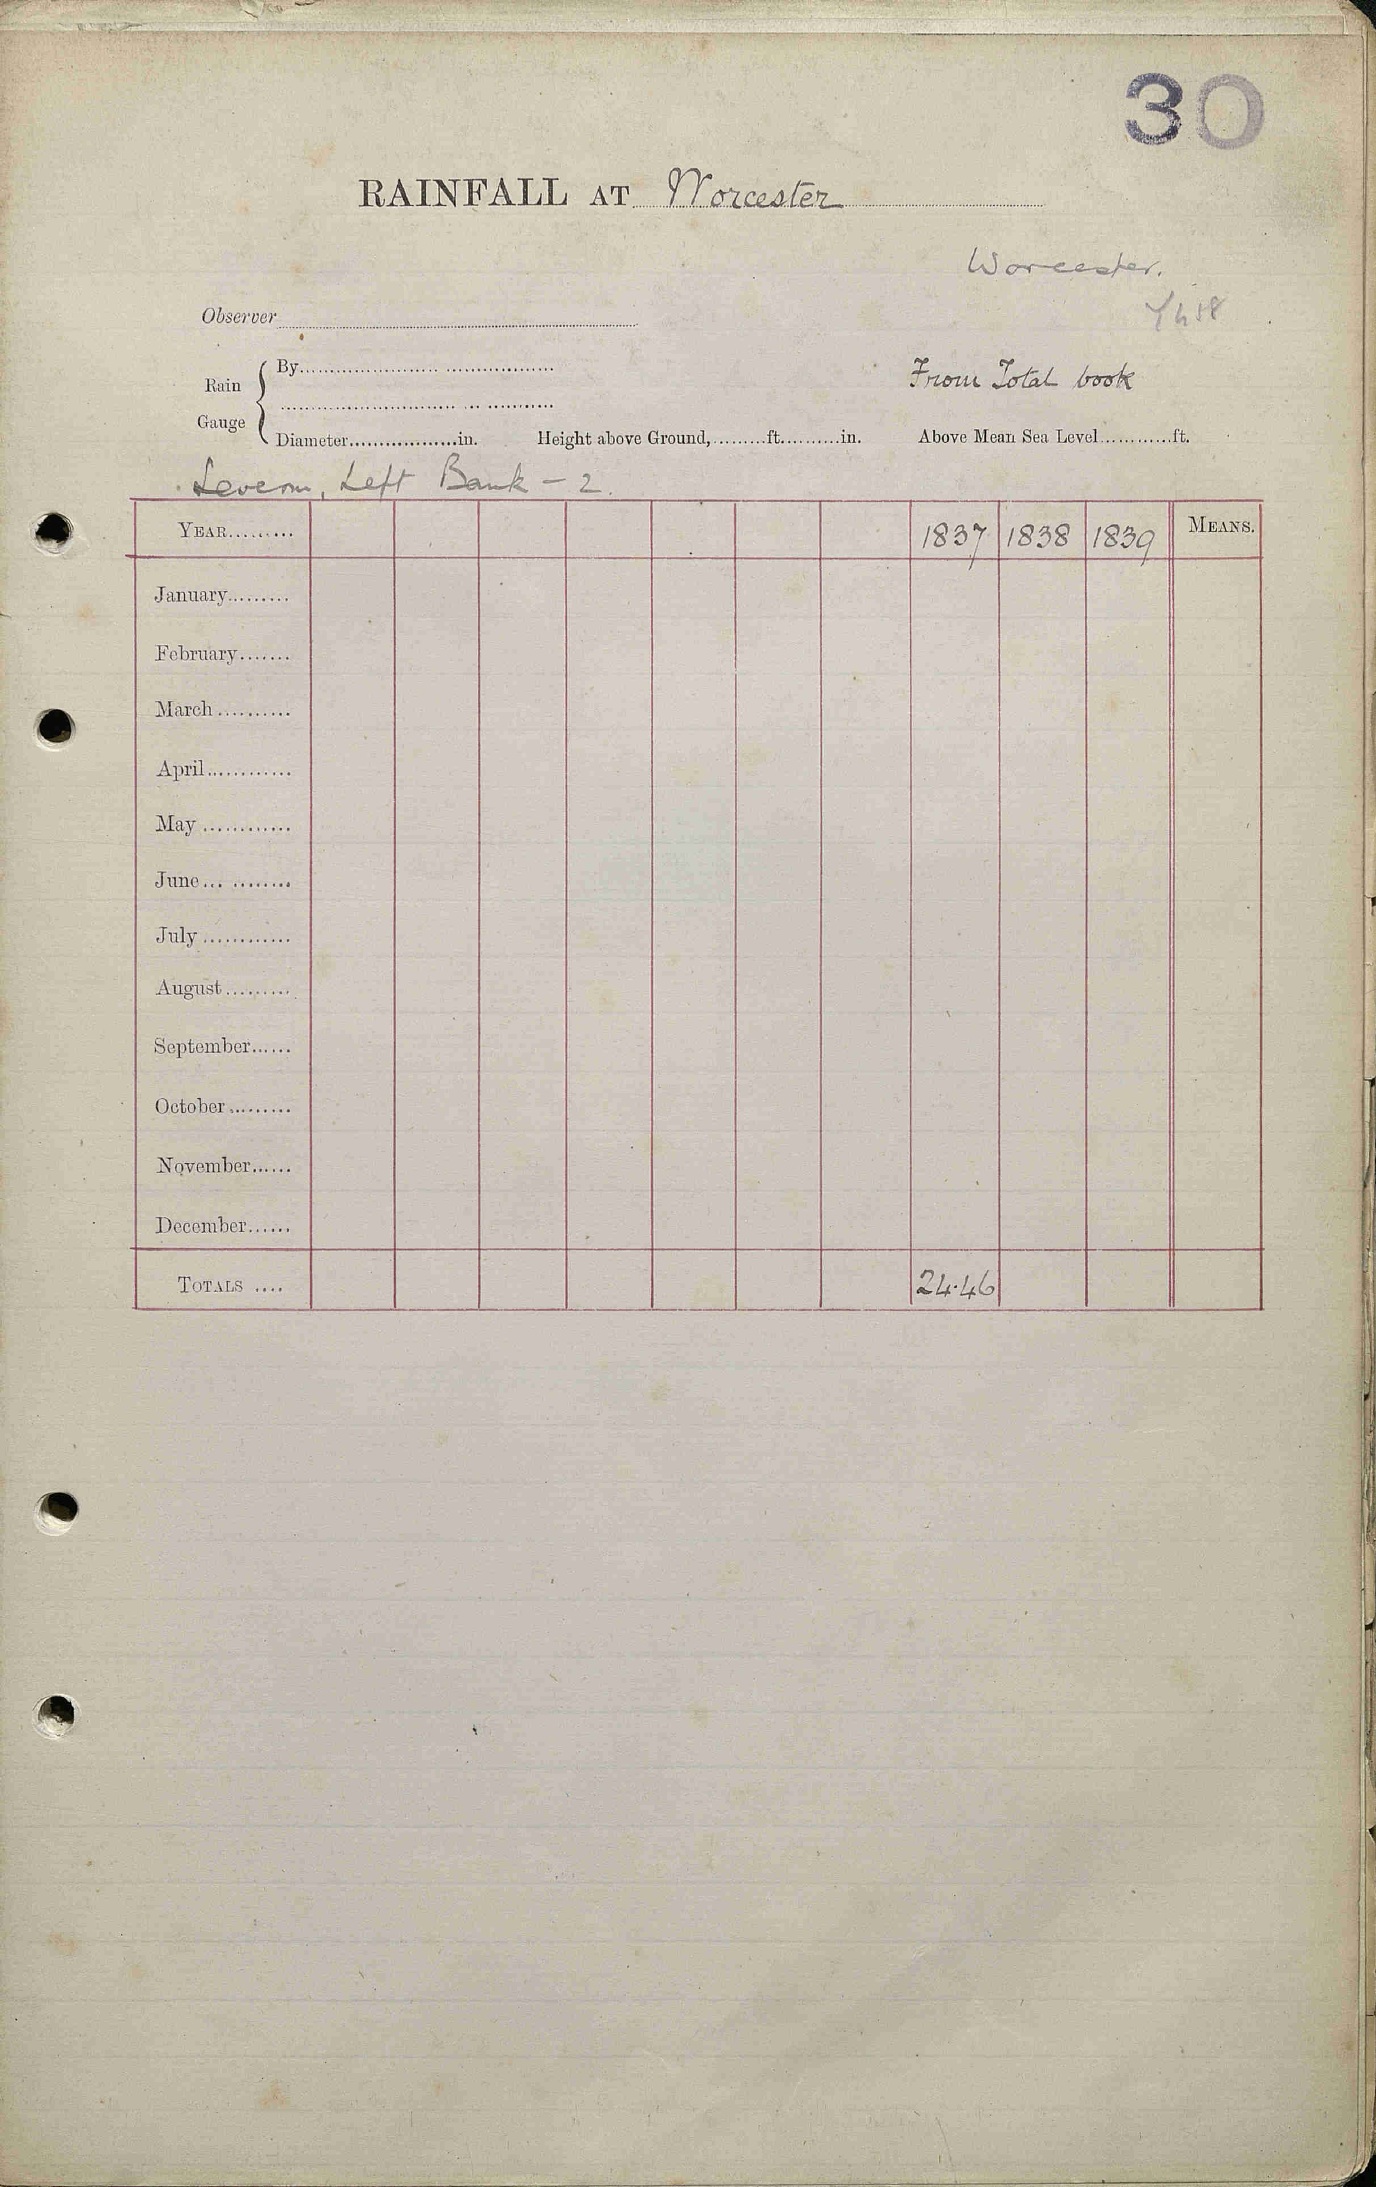 30
RAINFALL AT Worcester
Worcester.
Observer
From Total book
Rain Gauge { By
Diameter in. Height above Ground, ft. in. Above Mean Sea Level ft.
Severn, Left Bank - 2.
YEAR 1837 1838 1839 MEANS.
January
February
March
April
May
June
July
August
September
October
November
December
TOTALS 24.46